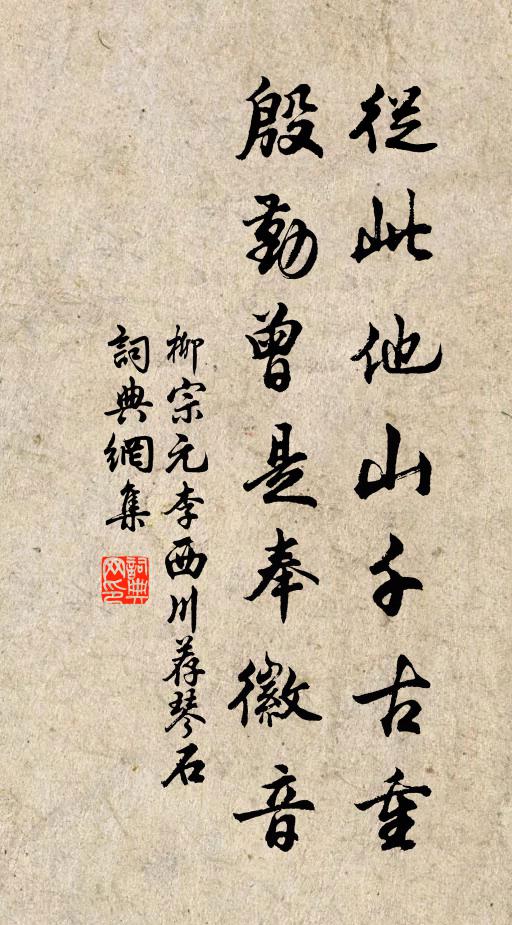 從此他山千古重
殷勤曾是奉徽音
柳宗元李西川荐琴石
詞典網集
詞典網印